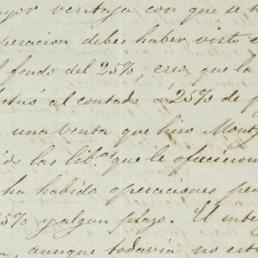 yor ventaja con que se h
peracion debes haber visto e
l fondo del 25%, creo que la
ctuó al contado á 25% de p
una venta que hizo Mont
io las lib.s que le ofrecieron
ha habido operaciones pe
5% y algun plazo. El inte
, aunque todavia no est